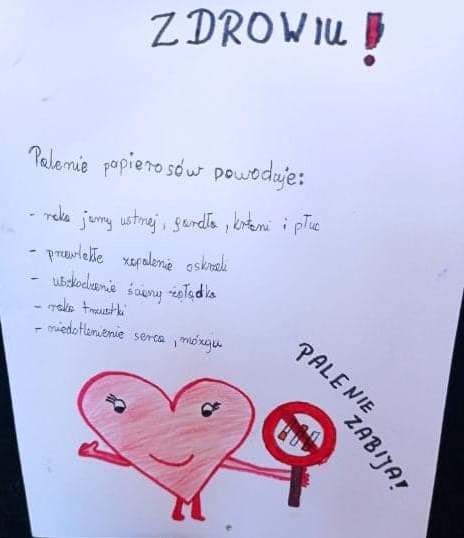 ZDROWIU!
Palenie papierosów powoduje:
- raka jamy ustnej, gardła, krtani i płuc
- przewlekłe zapalenie oskrzeli
- uszkodzenie ściany żołądka
- raka trzustki
- niedotlenienie serca, mózgu
PALENIE
ZABIJA!